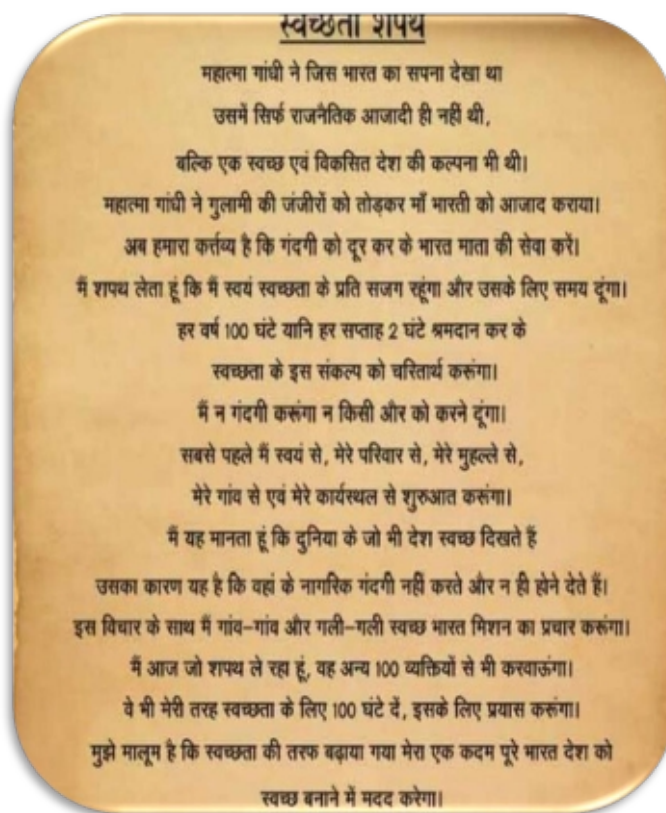 स्वच्छता शपथ
महात्मा गांधी ने जिस भारत का सपना देखा था
उसमें सिर्फ राजनैतिक आजादी ही नहीं थी,
बल्कि एक स्वच्छ एवं विकसित देश की कल्पना भी थी।
महात्मा गांधी ने गुलामी की जंजीरों को तोड़कर माँ भारती को आजाद कराया।
अब हमारा कर्त्तव्य है कि गंदगी को दूर कर के भारत माता की सेवा करें।
मैं शपथ लेता हूं कि मैं स्वयं स्वच्छता के प्रति सजग रहूंगा और उसके लिए समय दूंगा।
हर वर्ष 100 घंटे यानि हर सप्ताह 2 घंटे श्रमदान कर के
स्वच्छता के इस संकल्प को चरितार्थ करूंगा।
मैं न गंदगी करूंगा न किसी और को करने दूंगा।
सबसे पहले मैं स्वयं से, मेरे परिवार से, मेरे मुहल्ले से,
मेरे गांव से एवं मेरे कार्यस्थल से शुरुआत करूंगा।
मैं यह मानता हूं कि दुनिया के जो भी देश स्वच्छ दिखते हैं
उसका कारण यह है कि वहां के नागरिक गंदगी नहीं करते और न ही होने देते हैं।
इस विचार के साथ मैं गांव-गांव और गली-गली स्वच्छ भारत मिशन का प्रचार करूंगा।
मैं आज जो शपथ ले रहा हूं, वह अन्य 100 व्यक्तियों से भी करवाऊंगा।
वे भी मेरी तरह स्वच्छता के लिए 100 घंटे दें, इसके लिए प्रयास करूंगा।
मुझे मालूम है कि स्वच्छता की तरफ बढ़ाया गया मेरा एक कदम पूरे भारत देश को
स्वच्छ बनाने में मदद करेगा।